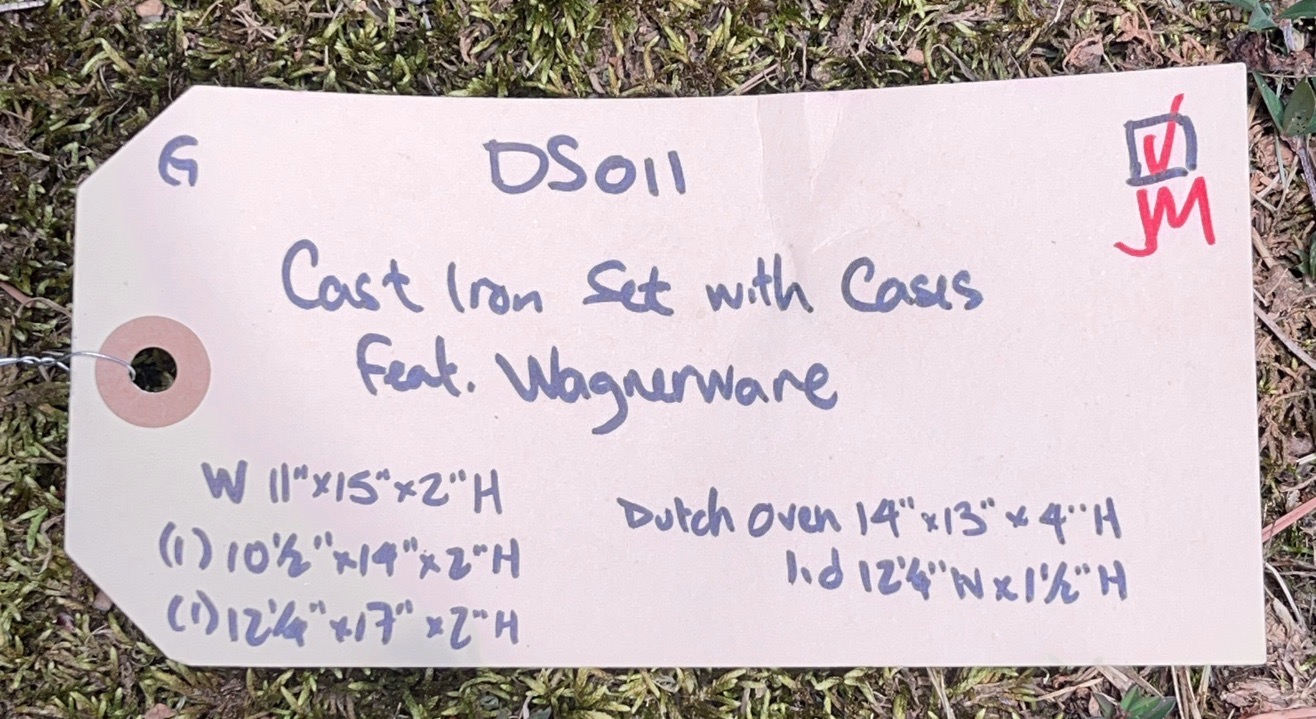 G DS011 ☑
JM
Cast Iron Set with Cases
Feat. Wagnerware
W 11"x15"x2"H
(1) 10½"x14"x2"H
(1) 12¼"x17"x2"H
Dutch oven 14"x13"x4"H
lid 12¼"W x 1½"H